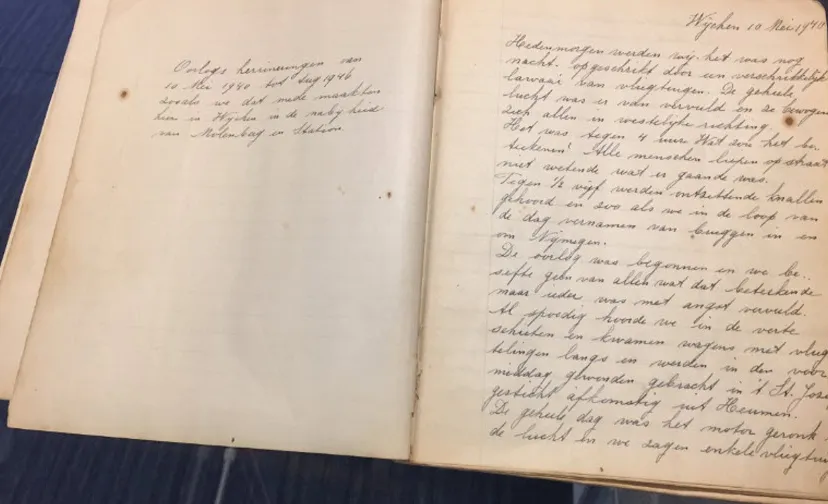 Oorlogs herrineringen van
10 Mei 1940 tot Aug 1946
zooals we dat mede maakten
hier in Wijchen in de nabijheid
van Molenbag en Station
Wijchen 10 Mei 1940
Hedenmorgen werden wij het was nog
nacht opgeschrikt door een verschrikkelijk
lawaai van vliegtuigen. De geheele
lucht was er van vervuld en ze bewogen
zich allen in westelijke richting.
Het was tegen 4 uur. Wat zou het be-
teekenen! Alle menschen liepen op straat
niet wetende wat er gaande was.
Tegen ½ vijf werden ontzettende knallen
gehoord en zoo als we in de loop van
de dag vernamen van bruggen in en
om Nijmegen.
De oorlog was begonnen en we be..
sefte geen van allen wat dat beteekende
maar ieder was met angst vervuld.
Al spoedig hoorde we in de verte
schieten en kwamen wagens met vlug
telingen langs en werden in den voor
middag gewonden gebracht in 't St. Jose
gesticht afkomstig uit Heumen.
De geheele dag was het motor geronk
de lucht en we zagen enkele vliegtuig